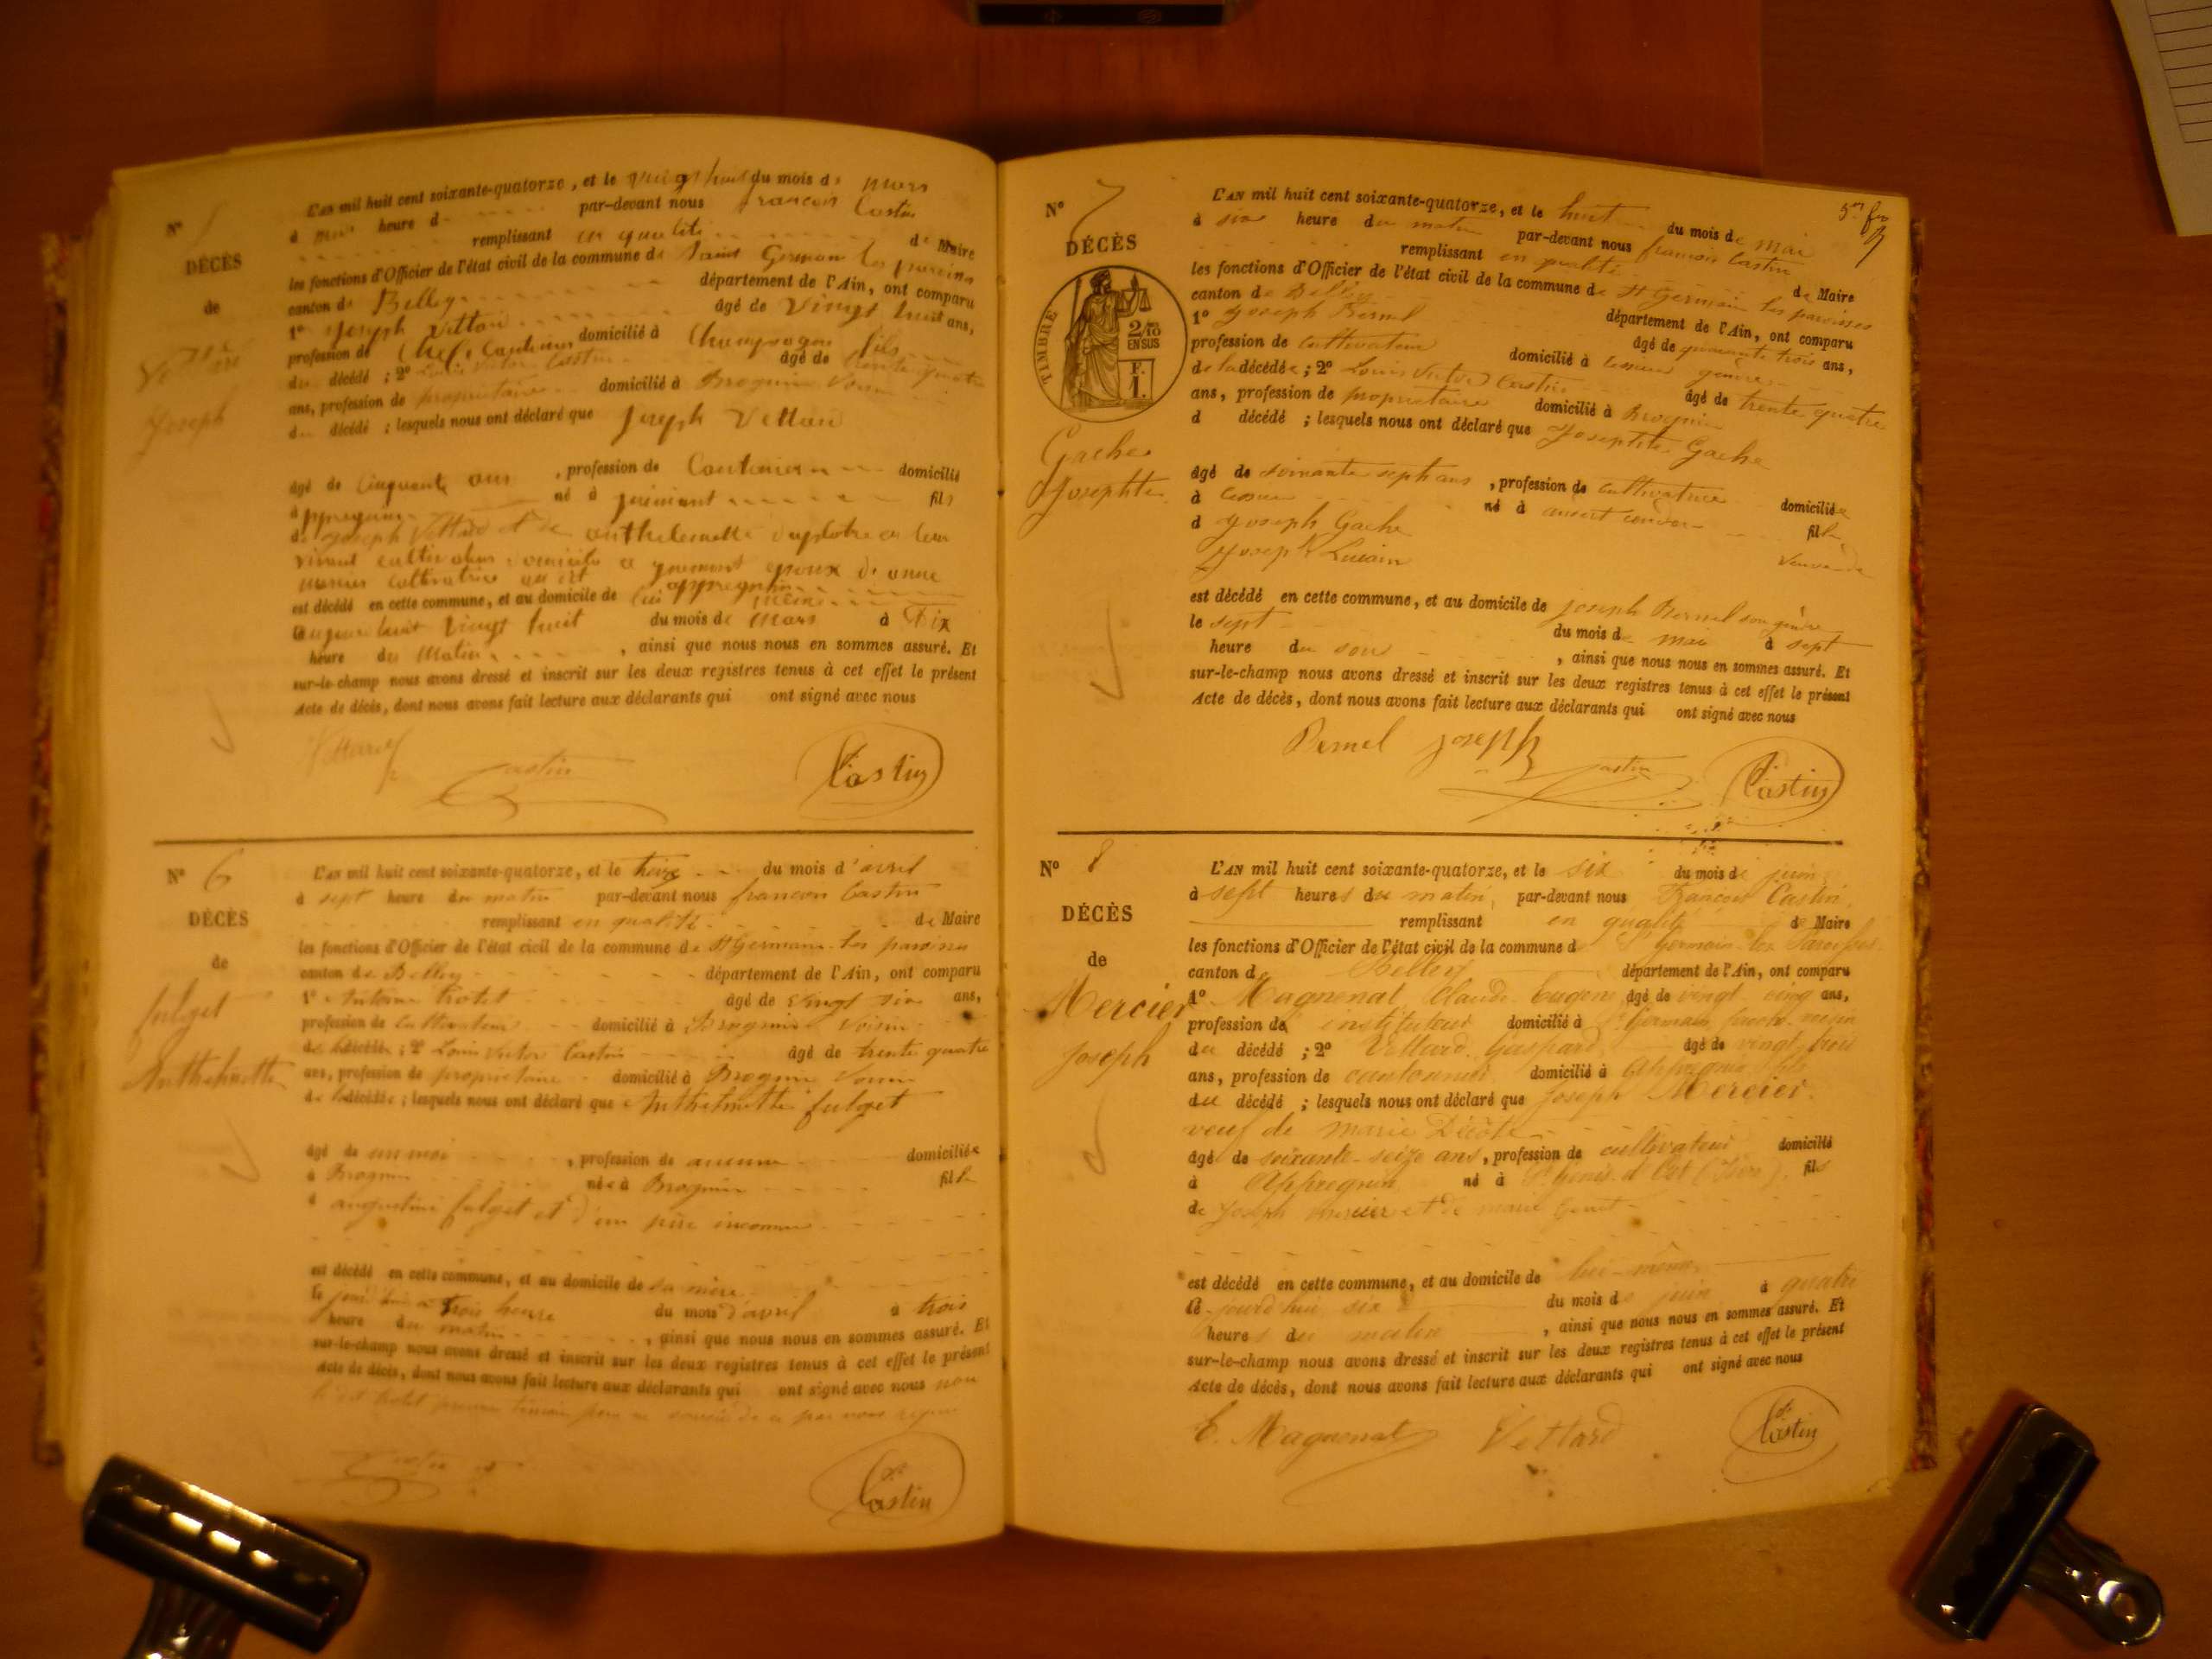 N° 5
DÉCÈS
de
Joseph
L'AN mil huit cent soixante-quatorze, et le vingt huit du mois de mars
à heure d par-devant nous françois Castin
remplissant en qualité de Maire
les fonctions d'Officier de l'état civil de la commune de Saint Germain les paroiss
canton de Belley département de l'Ain, ont comparu
1° Joseph Vettard âgé de Vingt huit ans,
profession de Chef Cantonier domicilié à Champagne fils
du décédé ; 2° Louis Victor Castin âgé de trente quatre
ans, profession de propriétaire domicilié à Brognin Voisin
du décédé ; lesquels nous ont déclaré que Joseph Vettard
âgé de Cinquante ans , profession de Cantonier domicilié
à appregnin né à fils
de Joseph Vettard et de anthelmette en leur
vivant cultivateur à époux d'anne
mercier cultivatrice
est décédé en cette commune, et au domicile de lui même
aujourd'huit Vingt huit du mois de Mars à Dix
heure du Matin , ainsi que nous nous en sommes assuré. Et
sur-le-champ nous avons dressé et inscrit sur les deux registres tenus à cet effet le présent
Acte de décès, dont nous avons fait lecture aux déclarants qui ont signé avec nous
Vettard Castin Castin
N° 6
DÉCÈS
de
fulget
Anthelmette
L'AN mil huit cent soixante-quatorze, et le treize du mois d'avril
à sept heure du matin par-devant nous françois Castin
remplissant en qualité de Maire
les fonctions d'Officier de l'état civil de la commune de St Germain les paroiss
canton de Belley département de l'Ain, ont comparu
1° Antoine Trolet âgé de vingt six ans,
profession de cultivateur domicilié à Brognin Voisin
de décédé ; 2° Louis Victor Castin âgé de trente quatre
ans, profession de propriétaire domicilié à Brognin Voisin
de la décédée ; lesquels nous ont déclaré que Anthelmette fulget
âgé de un moi , profession de aucune domiciliée
à Brognin née à Brognin fille
d augustine fulget et d'un père inconnu
est décédé en cette commune, et au domicile de sa mère
le jourd'hui à trois heure du mois d'avril à trois
heure du matin , ainsi que nous nous en sommes assuré. Et
sur-le-champ nous avons dressé et inscrit sur les deux registres tenus à cet effet le présent
Acte de décès, dont nous avons fait lecture aux déclarants qui ont signé avec nous non
Castin
5me
N° 7
DÉCÈS
TIMBRE
2/10 EN SUS
F. 1.
Gache
Josephte
L'AN mil huit cent soixante-quatorze, et le huit du mois de mai
à six heure du matin par-devant nous françois Castin
remplissant en qualité de Maire
les fonctions d'Officier de l'état civil de la commune de St Germain les paroisses
canton de Belley département de l'Ain, ont comparu
1° Joseph Bernel âgé de trois ans,
profession de cultivateur domicilié à gendre
de la décédée ; 2° Louis Victor Castin âgé de trente quatre
ans, profession de propriétaire domicilié à Brognin
d décédé ; lesquels nous ont déclaré que Josephte Gache
âgé de soixante sept ans , profession de cultivatrice domiciliée
à né à fille
d Joseph Gache veuve de
Joseph
est décédé en cette commune, et au domicile de Joseph Bernel son gendre
le sept du mois de mai à sept
heure du soir , ainsi que nous nous en sommes assuré. Et
sur-le-champ nous avons dressé et inscrit sur les deux registres tenus à cet effet le présent
Acte de décès, dont nous avons fait lecture aux déclarants qui ont signé avec nous
Bernel Joseph Castin Castin
N° 8
DÉCÈS
de
Mercier
Joseph
L'AN mil huit cent soixante-quatorze, et le six du mois de juin
à sept heures du matin, par-devant nous François Castin,
remplissant en qualité de Maire
les fonctions d'Officier de l'état civil de la commune d St Germain-les-Paroisses
canton de Belley département de l'Ain, ont comparu
1° Magnenat Claude Eugène âgé de vingt cinq ans,
profession de instituteur domicilié à St Germain
du décédé ; 2° Vettard Gaspard âgé de vingt trois
ans, profession de cantonnier domicilié à Appregnin
du décédé ; lesquels nous ont déclaré que Joseph Mercier.
veuf de marie
âgé de soixante-seize ans, profession de cultivateur domicilié
à Appregnin né à fils
de Joseph mercier et de marie
est décédé en cette commune, et au domicile de lui-même
le jourd'hui six du mois de juin à quatre
heures du matin , ainsi que nous nous en sommes assuré. Et
sur-le-champ nous avons dressé et inscrit sur les deux registres tenus à cet effet le présent
Acte de décès, dont nous avons fait lecture aux déclarants qui ont signé avec nous
E. Magnenat Vettard Castin